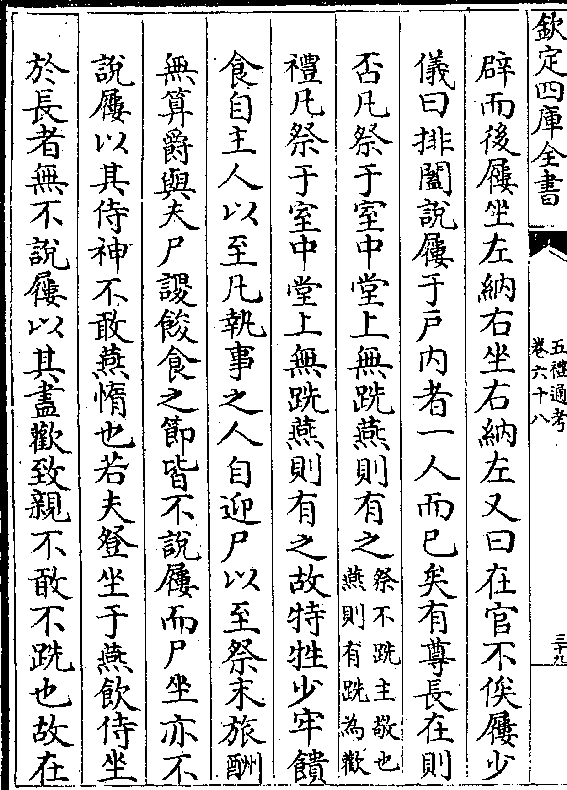 欽定四庫全書
五禮通考
卷六十八
三十九
辟而後屨坐左納右坐右納左又曰在官不俟屨少
儀曰排闔說屨于戶內者一人而已矣有尊長在則
否凡祭于室中堂上無跣燕則有之祭不跣主敬也
燕則有跣為歡
禮凡祭于室中堂上無跣燕則有之故特牲少牢饋
食自主人以至凡執事之人自迎尸以至祭末旅酬
無算爵與夫尸謖餕食之節皆不說屨而尸坐亦不
說屨以其侍神不敢燕惰也若夫登坐于燕飲侍坐
於長者無不說屨以其盡歡致親不敢不跣也故在